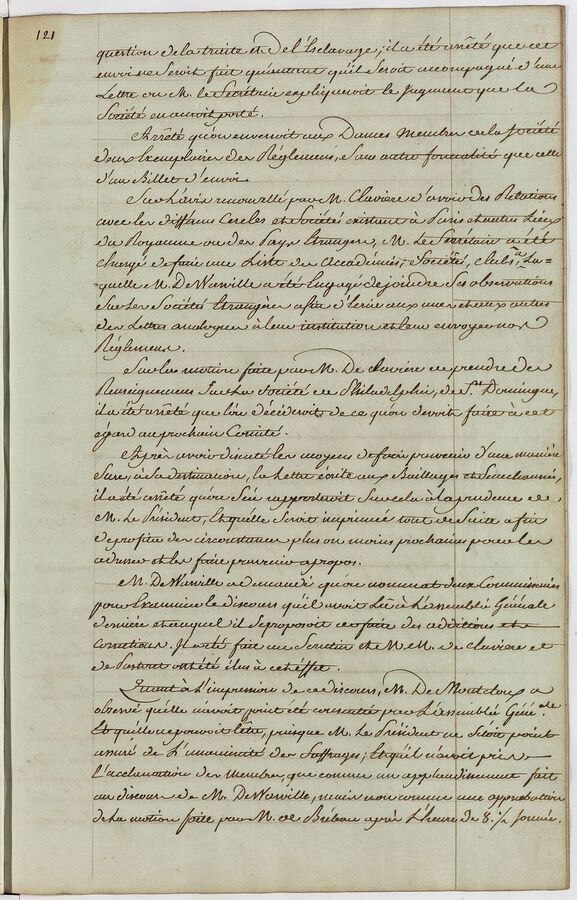 121
question de la traite et de l'Esclavage; il a été arrêté que cet
envoi ne seroit fait qu'autant qu'il seroit accompagné d'une
Lettre ou M. le Secrétaire expliqueroit le Jugement que la
Société en auroit porté.
Arrêté qu'on enverroit aux Dames Membres de la Société
deux Exemplaires des Réglemens, sans autre formalité que celle
d'un Billet d'envoi.
Sur l'avis renouvellé par M. Claviere d'avoir des Relations
avec les différens Cercles et Sociétés existant à Paris et autres Lieux
du Royaume ou des Pays Etrangers, M. Le Secrétaire a été
chargé de faire une Liste des Accadémies, Sociétés, clubs, à La=
quelle M. De Warville a été Engagé de joindre ses observations
sur les Sociétés Etrangères afin d'écrire aux unes et aux autres
des Lettres analogues à leur institution et leur envoyer nos
Réglemens.
Sur la motion faite par M. De claviere de prendre des
Renseignemens sur la Société de Philadelphie, de St. Domingue,
il a été arrêté que l'on décideroit de ce qu'on devroit faire à cet
égard au prochain Comité.
Après avoir discuté les moyens de faire parvenir d'une manière
sure, à sa destination, la Lettre écrite aux Baillages et Senechaussées,
il a été arrêté qu'on s'en rapporteroit sur cela à la prudence de
M. Le Président, Et qu'elle seroit imprimée tout de suite afin
de profiter des circonstances plus ou moins prochaines pour les
adresser et les faire parvenir apropos.
M. De Warville a demandé qu'on nommat deux Commissaires
pour Examiner le discours qu'il avoit Lu à L'assemblée Générale
derniere et auquel il se proposoit de faire des additions et
corrections. Il a été fait un Scrutin et M. M. de claviere et
de Pastoret ont été élus à cet effet.
Quant à L'impression de ce discours, M. De Montcloux a
observé qu'elle n'avoit point été consentie par L'assemblée Géné.ale
Et qu'elle ne pouvoit L'être, puisque M. Le Président ne s'étoit point
assuré de L'unanimité des Suffrages; Et qu'il n'avoit pris
L'acclamation des membres, que comme un applaudissement fait
au discours de M. De Warville, mais non comme une approbation
de la motion faite par M. de Bréban après L'heure de 8. ½ sonnée.